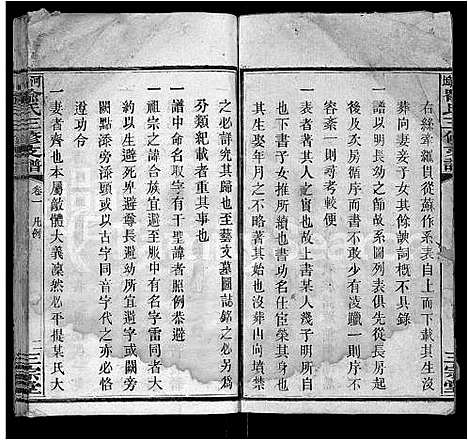 右絲牽綱貫從蘇作系表自上而下載生沒
葬向妻妾子女其餘諛詞概不具錄
一譜以紀序次爲法系圖列表俱先從長房起
以後及次房循序而書不敢少有凌躐一則
容紊一則尋考較便
一表者著其人之實也故上書某人幾子明所自
出下書妻妾子女推所續也書功名仕宦榮其身也
其生娶年月之不晦于其始也沒葬山向墳禁
之必詳究其歸也至藝文墓圖誌銘之必另爲
分類纪載者重其事也
一譜中命名取字有干聖諱者照例恭避
一祖宗之諱合族宜避至服中有名字雷同者大
約以生避死卑避尊長避幼所宜避字或闕旁
闕點或擇一古字或以古字同音字代之亦必恪
遵功令
一妻者齊也本屬敵體大義凜然必平提某氏大
氏三修支譜
卷一 凡例
三宗堂
三宗堂